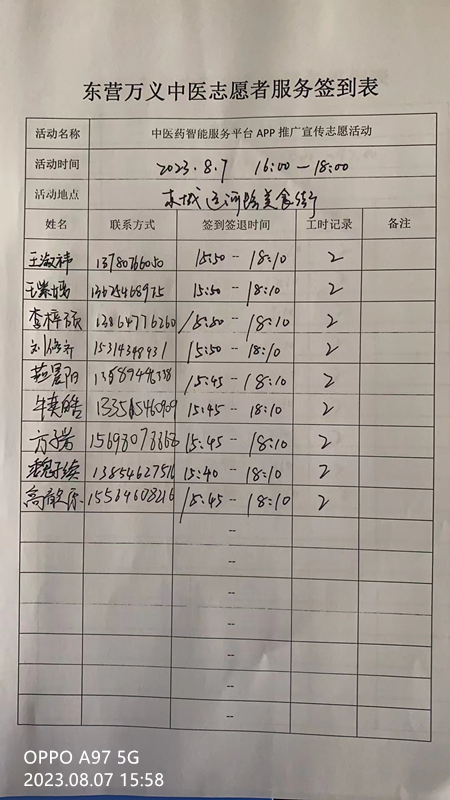 东营万义中医志愿者服务签到表
活动名称 中医药智能服务平台 APP 推广宣传志愿活动
活动时间 2023.8.7 16:00—18:00
活动地点 东城运河路美食街
姓名 联系方式 签到签退时间 工时记录 备注
王淑祎 13780766050 15:50 -- 18:10 2
13675468975 15:50 -- 18:10 2
李梓硕 13864776260 15:50 -- 18:10 2
刘 15314348931 15:50 -- 18:10 2
燕晨阳 15:45 -- 18:10 2
牛奕皓 15:45 -- 18:10 2
方子岩 15698078868 15:45 -- 18:10 2
魏子续 13854627516 15:40 -- 18:10 2
高 15564608216 15:45 -- 18:10 2
--
--
--
--
--
--
--
OPPO A97 5G
2023.08.07 15:58